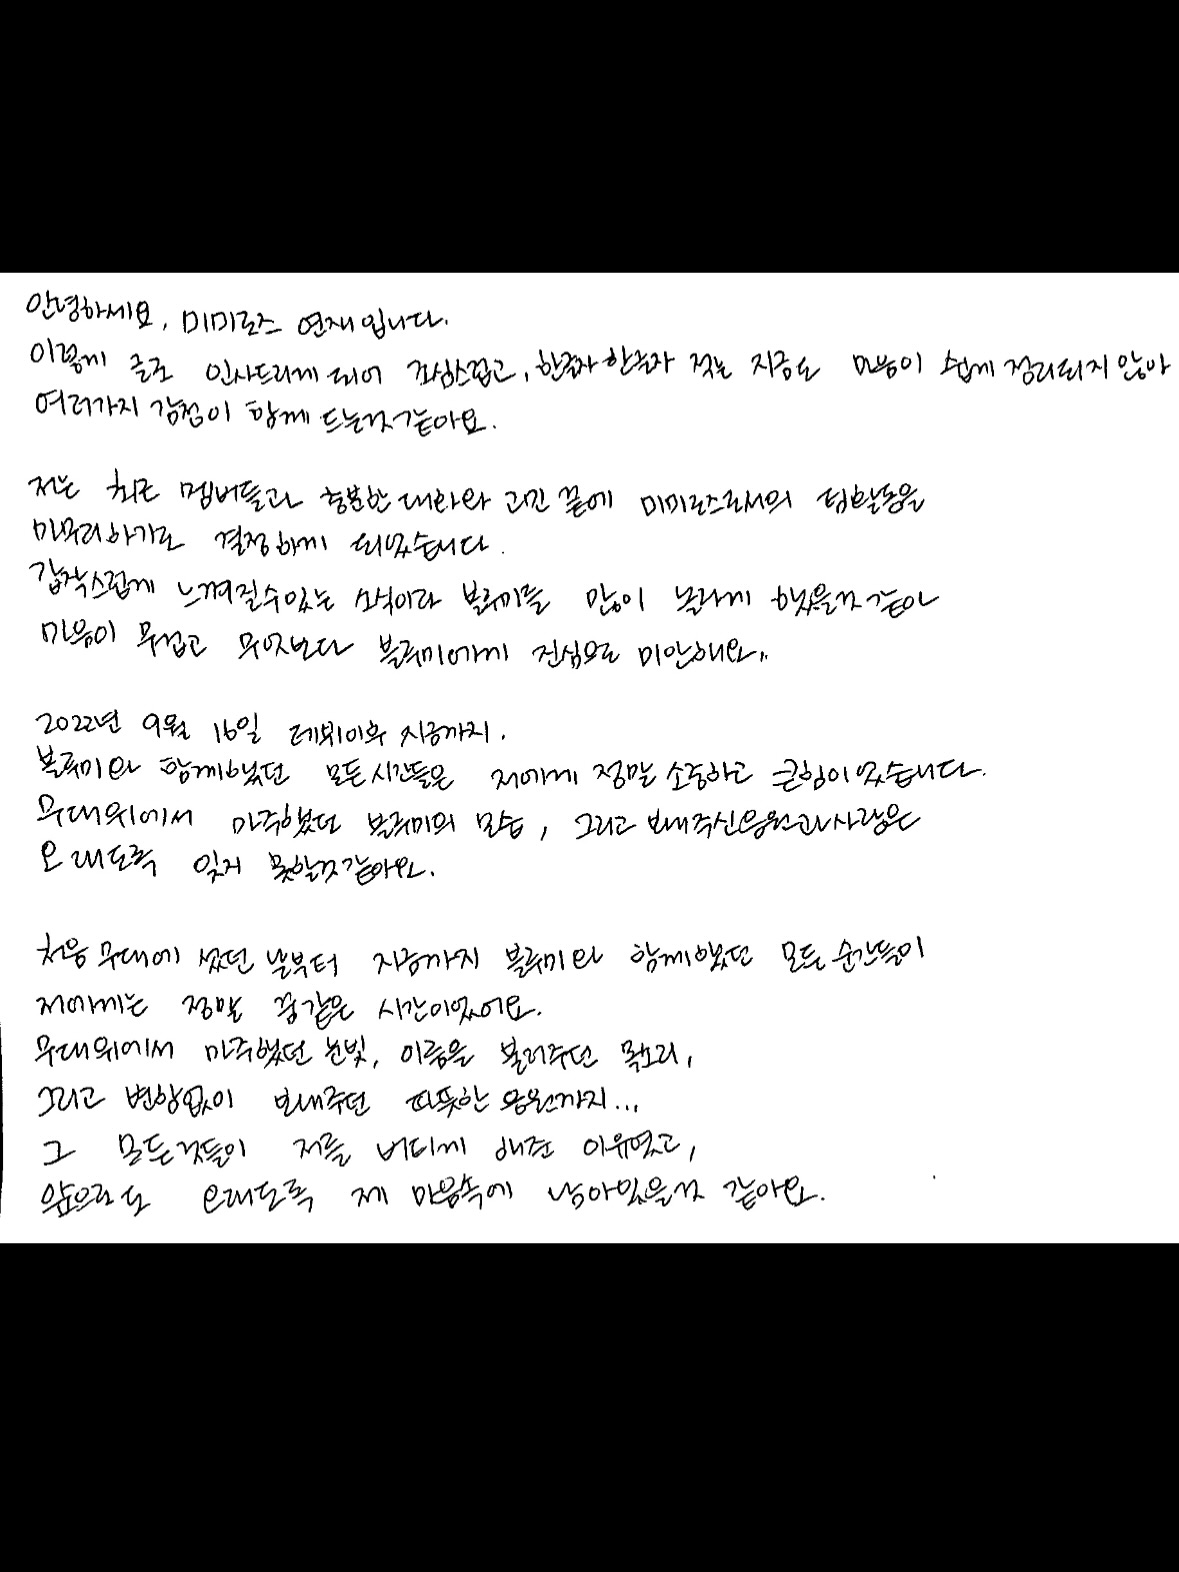 안녕하세요, 미미로즈 연재입니다.
이렇게 글로 인사드리게 되어 조심스럽고, 한글자 한글자 적는 지금도 마음이 쉽게 정리되지 않아
여러가지 감정이 함께 드는것같아요.
저는 최근 멤버들과 충분한 대화와 고민 끝에 미미로즈로서의 팀활동을
마무리하기로 결정하게 되었습니다.
갑작스럽게 느껴질수있는 소식이라 블루미를 많이 놀라게 했을것 같아
마음이 무겁고 무엇보다 블루미에게 진심으로 미안해요..
2022년 9월 16일 데뷔이후 지금까지.
블루미와 함께했던 모든시간들은 저에게 정말 소중하고 큰힘이었습니다.
무대위에서 마주했던 블루미의 모습, 그리고 보내주신응원과사랑은
오래도록 잊지 못할것같아요.
처음 무대에 섰던 날부터 지금까지 블루미와 함께했던 모든 순간들이
저에게는 정말 꿈같은 시간이었어요.
무대위에서 마주했던 눈빛, 이름을 불러주던 목소리,
그리고 변함없이 보내주던 따뜻한 응원까지...
그 모든것들이 저를 버티게 해준 이유였고,
앞으로도 오래도록 제 마음속에 남아있을것 같아요.